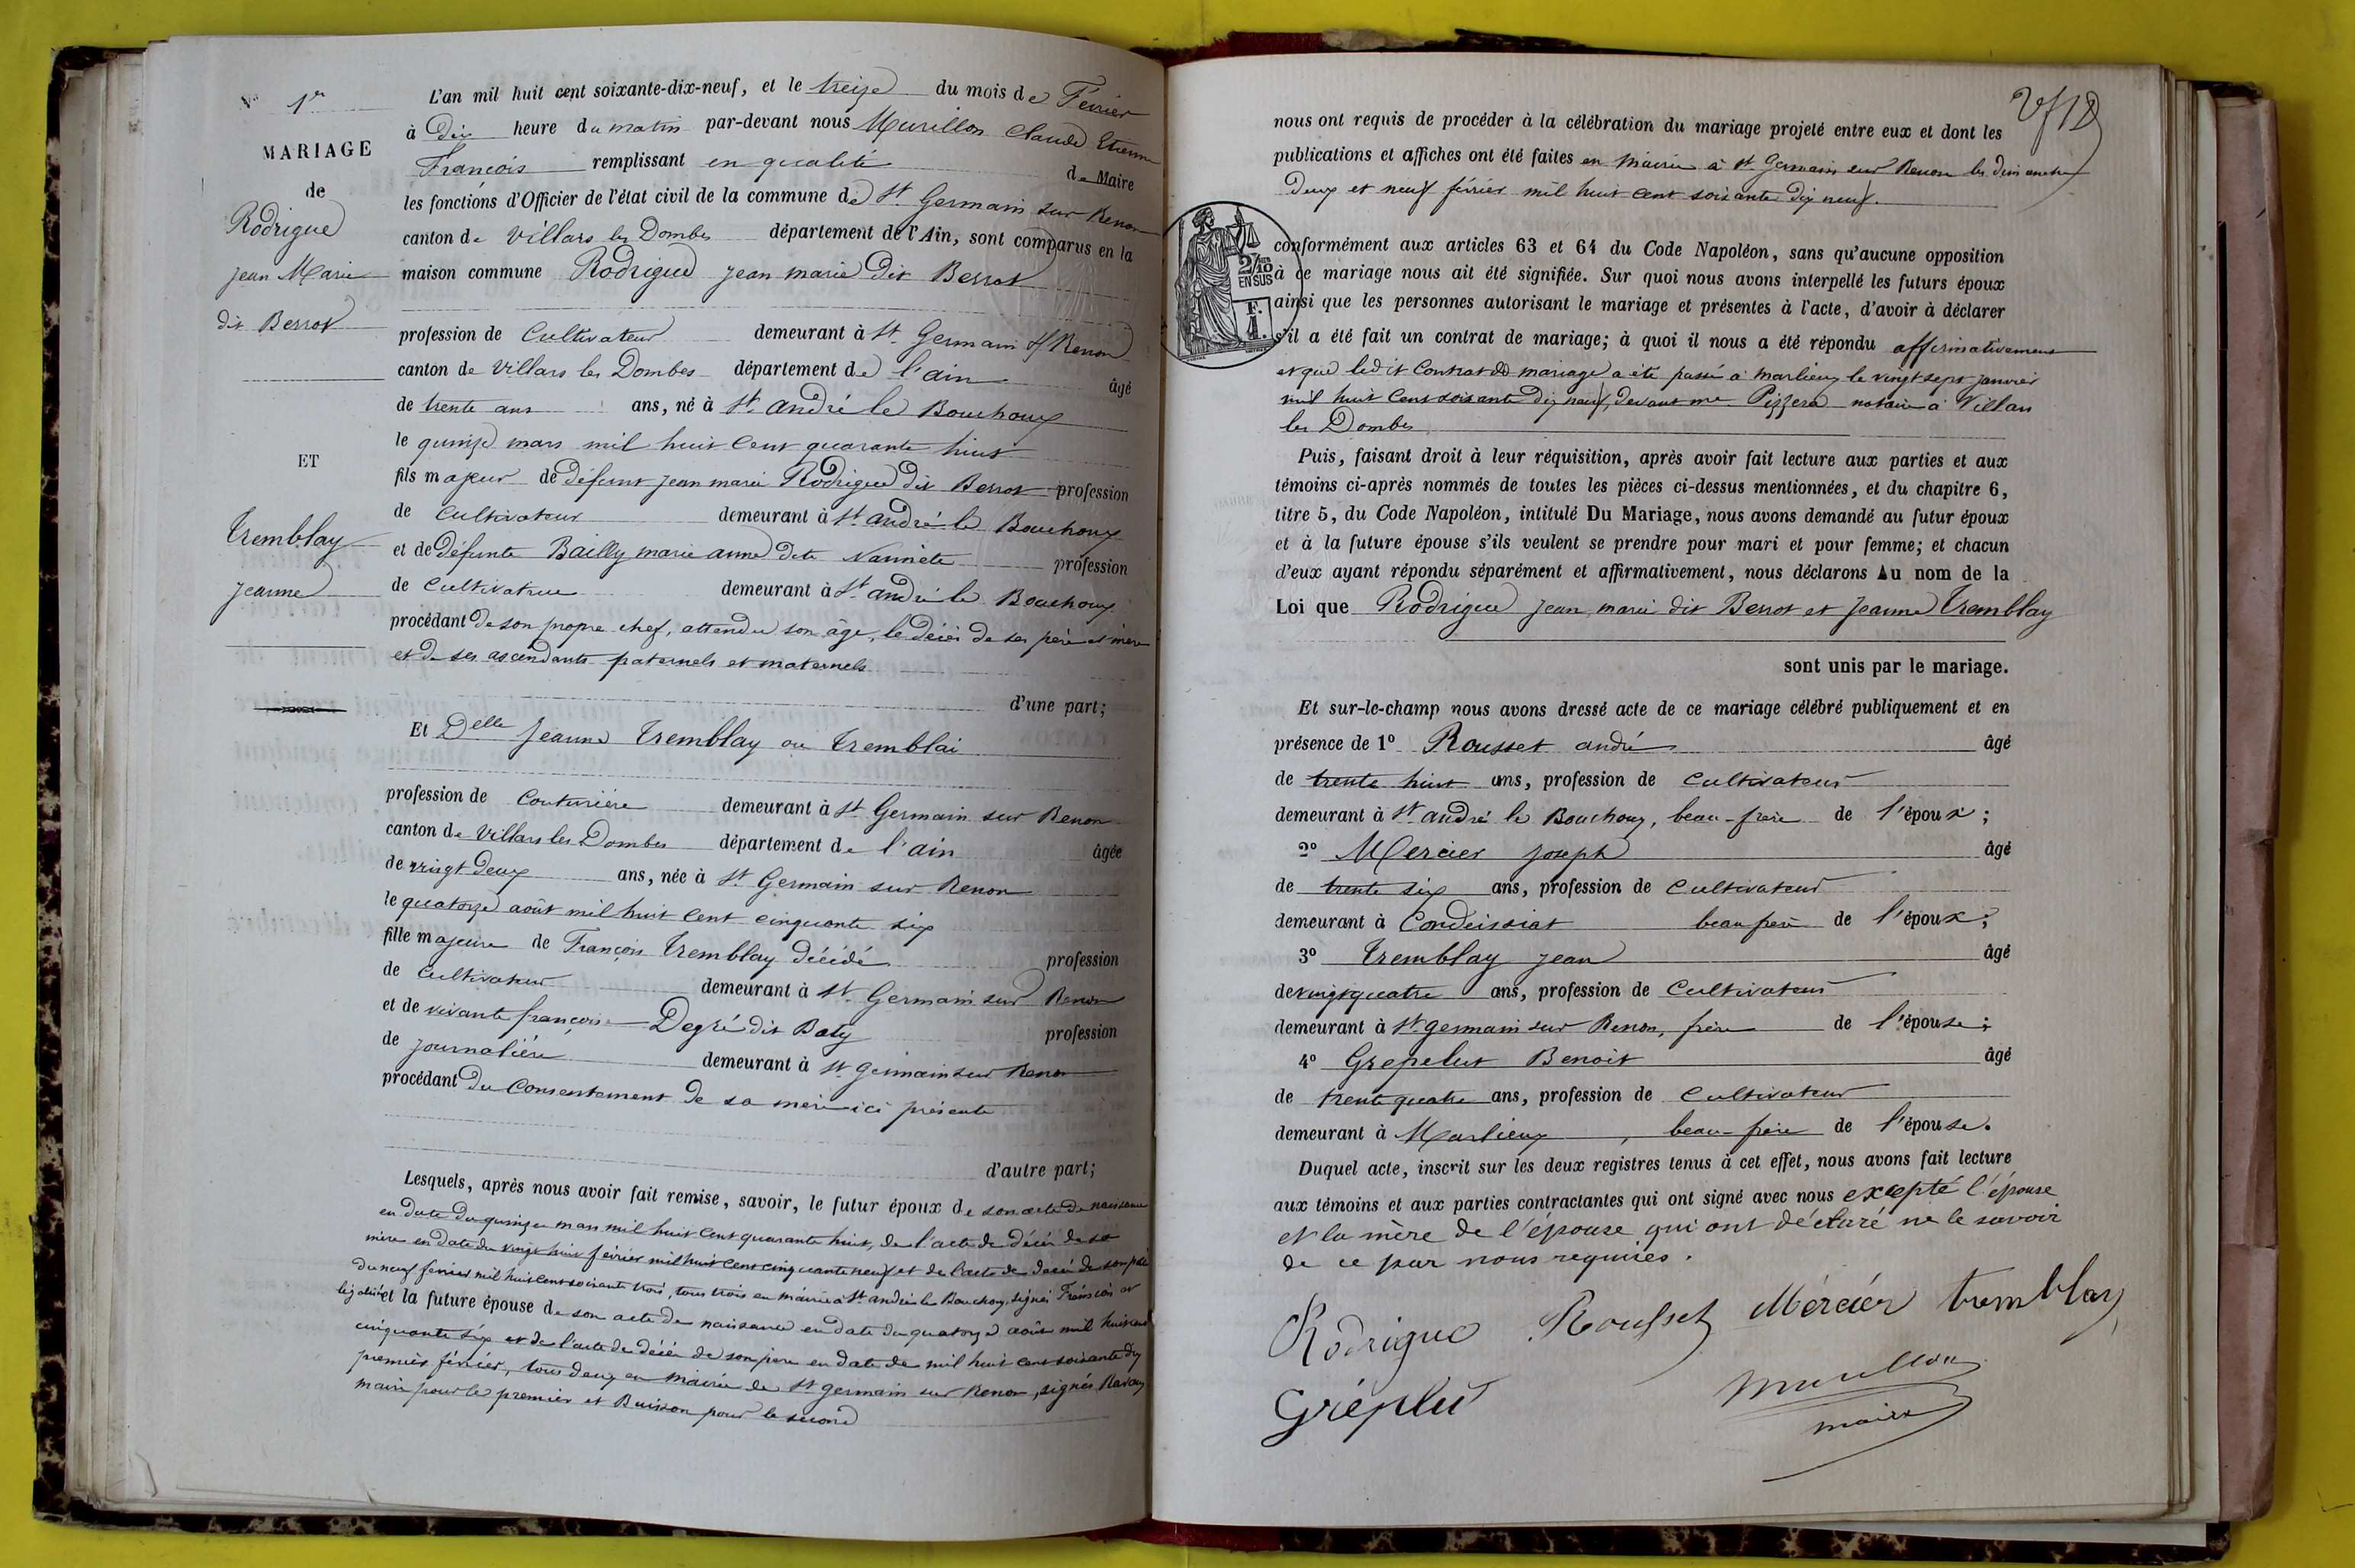 N° 1er
MARIAGE
de
Rodrigue
Jean Marie
dit Berrot
ET
Tremblay
Jeanne
L'an mil huit cent soixante-dix-neuf, et le treize du mois de Février
à dix heure du matin par-devant nous Murillon Claude Etienne
François remplissant en qualité de Maire
les fonctions d'Officier de l'état civil de la commune de St Germain sur Renon
canton de Villars les Dombes département de l'Ain, sont comparus en la
maison commune Rodrigue Jean marie dit Berrot
profession de Cultivateur demeurant à St Germain s/ Renon
canton de Villars les Dombes département de l'ain âgé
de trente ans ans, né à St andré le Bouchoux
le quinze mars mil huit cent quarante huit
fils majeur de défunt Jean marie Rodrigue dit Berrot profession
de Cultivateur demeurant à St andré le Bouchoux
et de défunte Bailly marie anne dite Nanniete profession
de Cultivatrice demeurant à St andré le Bouchoux
procédant de son propre chef, attendu son âge, le décès de ses père et mère
et de ses ascendants paternels et maternels
d'une part;
Et Delle Jeanne Tremblay ou Tremblai
profession de Couturière demeurant à St Germain sur Renon
canton de Villars les Dombes département de l'ain âgée
de vingt deux ans, née à St Germain sur Renon
le quatorze août mil huit cent cinquante six
fille majeure de François Tremblay décédé profession
de Cultivateur demeurant à St Germain sur Renon
et de vivante françoise Degré dit Baty profession
de journalière demeurant à St Germain sur Renon
procédant du Consentement de sa mère ici présente
d'autre part;
Lesquels, après nous avoir fait remise, savoir, le futur époux de son acte de naissance
en date du quinze mars mil huit cent quarante huit, de l'acte de décès de sa
mère en date du vingt huit février mil huit cent cinquante neuf et de l'acte de décès de son père
du neuf février mil huit cent soixante trois, tous trois en mairie à St andré le Bouchoux, signés et
légalisé et la future épouse de son acte de naissance en date du quatorze août mil huit cent
cinquante six et de l'acte de décès de son père en date de mil huit cent soixante dix
premier février, tous deux en mairie de St germain sur Renon, signés
maire pour le premier et Buisson pour le second
2/12
nous ont requis de procéder à la célébration du mariage projeté entre eux et dont les
publications et affiches ont été faites en mairie à St Germain sur Renon les dimanche
deux et neuf février mil huit cent soixante dix neuf.
2/10
EN SUS
F.
1.
conformément aux articles 63 et 64 du Code Napoléon, sans qu'aucune opposition
à ce mariage nous ait été signifiée. Sur quoi nous avons interpellé les futurs époux
ainsi que les personnes autorisant le mariage et présentes à l'acte, d'avoir à déclarer
s'il a été fait un contrat de mariage; à quoi il nous a été répondu affirmativement
et que ledit Contrat de mariage a été passé à marlieux le vingt sept janvier
mil huit cent soixante dix neuf, devant me Pizzera notaire à Villars
les Dombes
Puis, faisant droit à leur réquisition, après avoir fait lecture aux parties et aux
témoins ci-après nommés de toutes les pièces ci-dessus mentionnées, et du chapitre 6,
titre 5, du Code Napoléon, intitulé Du Mariage, nous avons demandé au futur époux
et à la future épouse s'ils veulent se prendre pour mari et pour femme; et chacun
d'eux ayant répondu séparément et affirmativement, nous déclarons Au nom de la
Loi que Rodrigue Jean marie dit Berrot et Jeanne Tremblay
sont unis par le mariage.
Et sur-le-champ nous avons dressé acte de ce mariage célébré publiquement et en
présence de 1° Rousset andré âgé
de trente huit ans, profession de Cultivateur
demeurant à St andré le Bouchoux, beau-frère de l'époux;
2° Mercier Joseph âgé
de trente six ans, profession de Cultivateur
demeurant à Condeissiat beau frère de l'époux;
3° Tremblay Jean âgé
de vingt quatre ans, profession de Cultivateur
demeurant à St germain sur Renon, frère de l'épouse;
4° Grepelut Benoit âgé
de trente quatre ans, profession de Cultivateur
demeurant à Marlieux, beau-frère de l'épouse.
Duquel acte, inscrit sur les deux registres tenus à cet effet, nous avons fait lecture
aux témoins et aux parties contractantes qui ont signé avec nous excepté l'épouse
et la mère de l'épouse qui ont déclaré ne le savoir
de ce par nous requises.
Rodrigue Rousset Mercier tremblay
Gréplut Murillon
maire